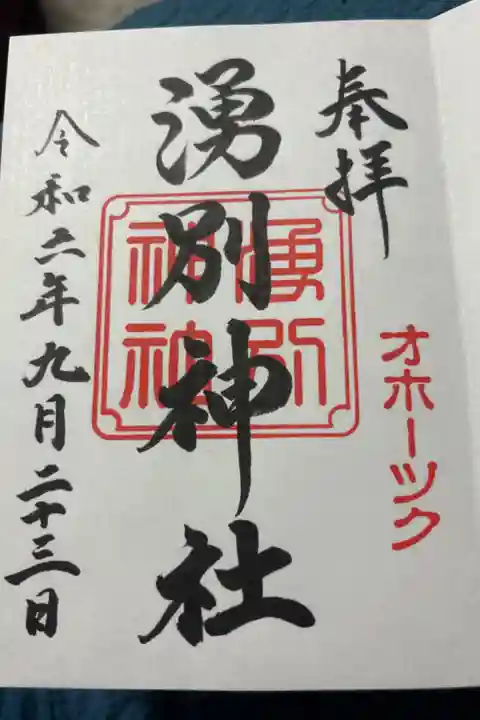 奉拝
オホーツク
湧別神社
令和二年九月二十三日